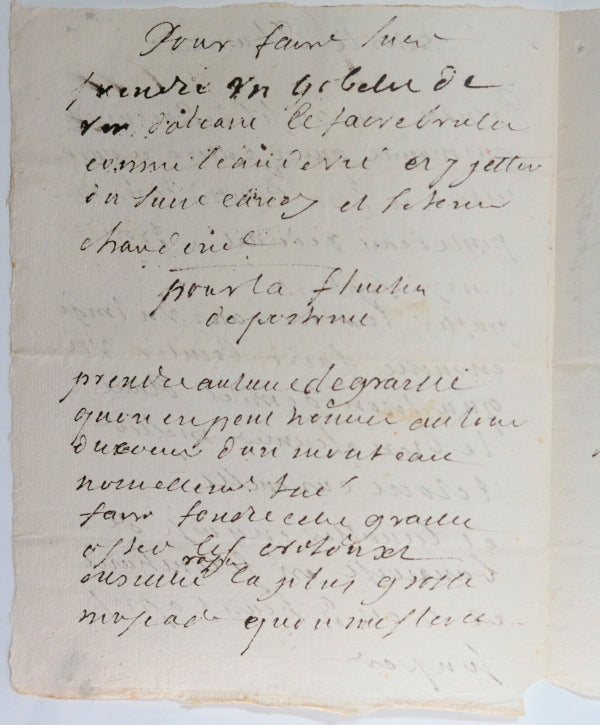 Pour faire suer
prendre un gobelet de
vin d'orleans le faire bruler
comme leau de vie et y jetter
du sucre et se tenir
chaudement
pour la fluction
de poitrine
prendre autant de graisse
qu'on en peut trouver autour
du coeur d'un mouton
nouvellement tué
faire fondre cette graisse
oster les cretons et
rapper
ensuitte la plus grosse
muscade qu'on